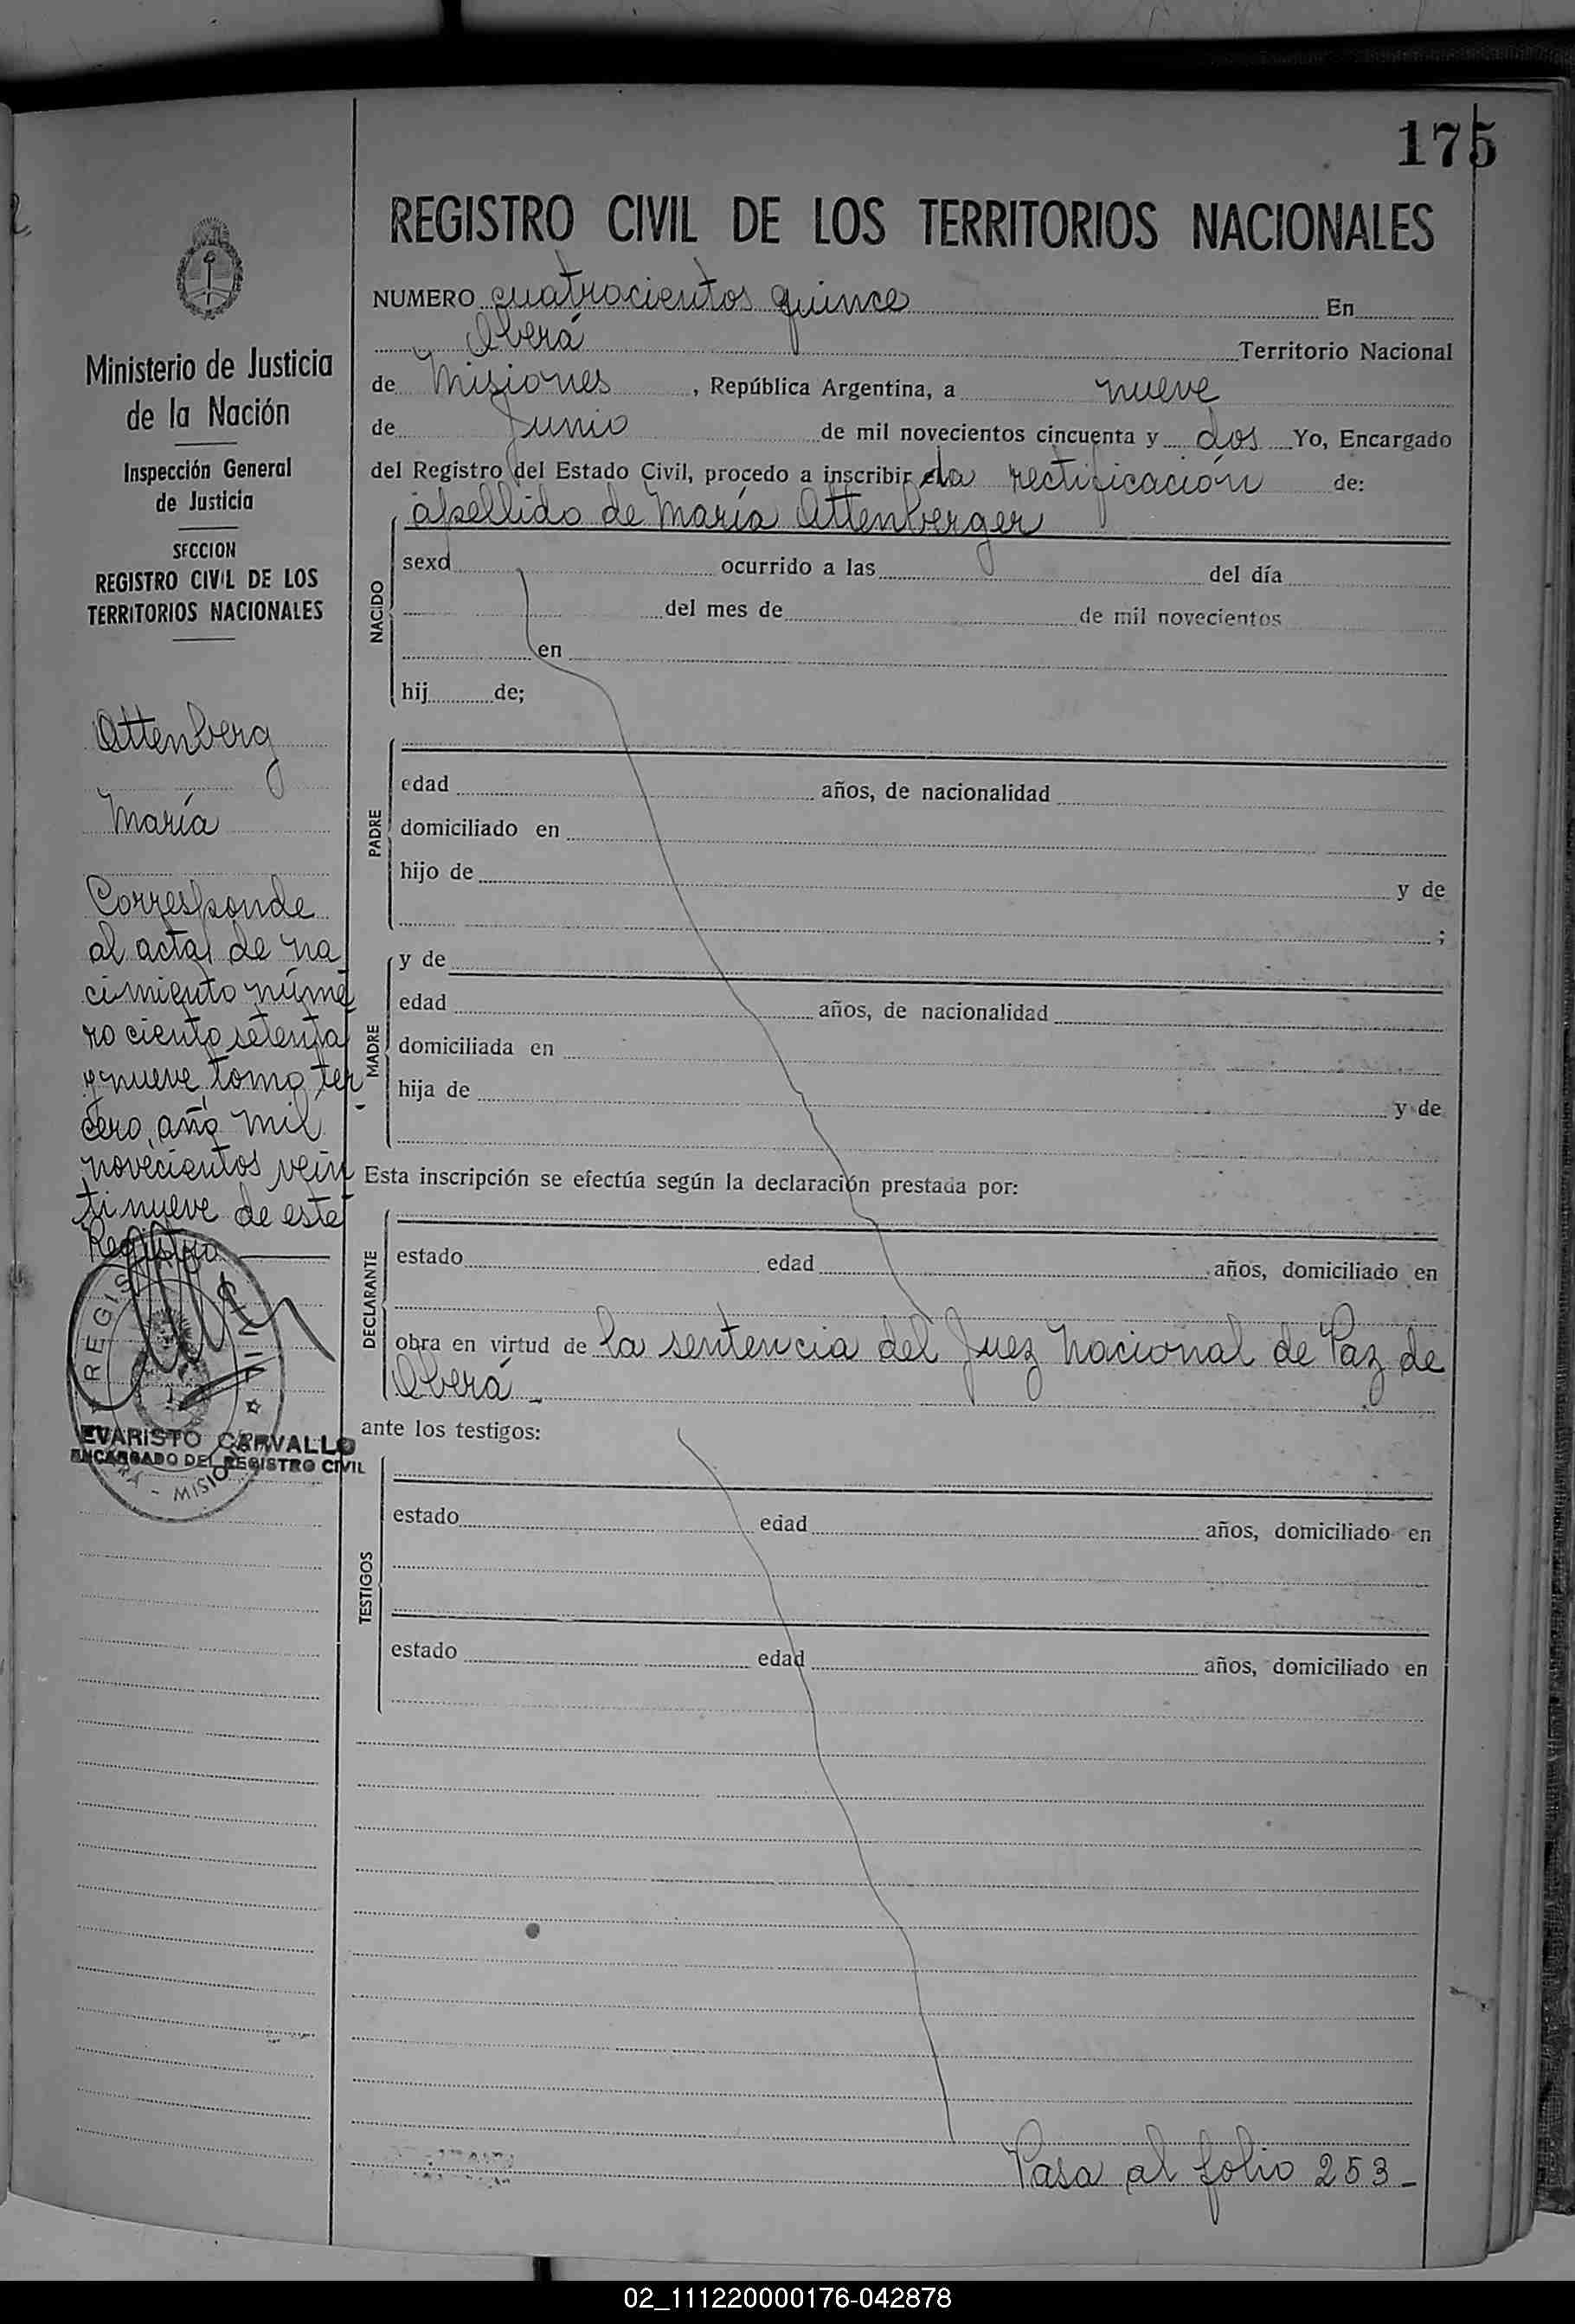 175
REGISTRO CIVIL DE LOS TERRITORIOS NACIONALES
NUMERO cuatrocientos quince En
Oberá Territorio Nacional
de Misiones, República Argentina, a nueve
de Junio de mil novecientos cincuenta y dos Yo, Encargado
del Registro del Estado Civil, procedo a inscribir la rectificación de:
apellido de María Attenberger
NACIDO
sexo ocurrido a las del día
del mes de de mil novecientos
en
hij de;
PADRE
edad años, de nacionalidad
domiciliado en
hijo de y de
;
MADRE
y de
edad años, de nacionalidad
domiciliada en
hija de y de
Esta inscripción se efectúa según la declaración prestada por:
DECLARANTE
estado edad años, domiciliado en
obra en virtud de la sentencia del Juez Nacional de Paz de
Oberá -
ante los testigos:
TESTIGOS
estado edad años, domiciliado en
estado edad años, domiciliado en
Pasa al folio 253-
Ministerio de Justicia
de la Nación
Inspección General
de Justicia
SECCION
REGISTRO CIVIL DE LOS
TERRITORIOS NACIONALES
Attenberg
María
Corresponde
al acta de na
cimiento núme
ro ciento setenta
y nueve, tomo ter
cero, año mil
novecientos vein
tinueve de este
Registro
EVARISTO CARVALLO
ENCARGADO DEL REGISTRO CIVIL
MISIONES
02_111220000176-042878